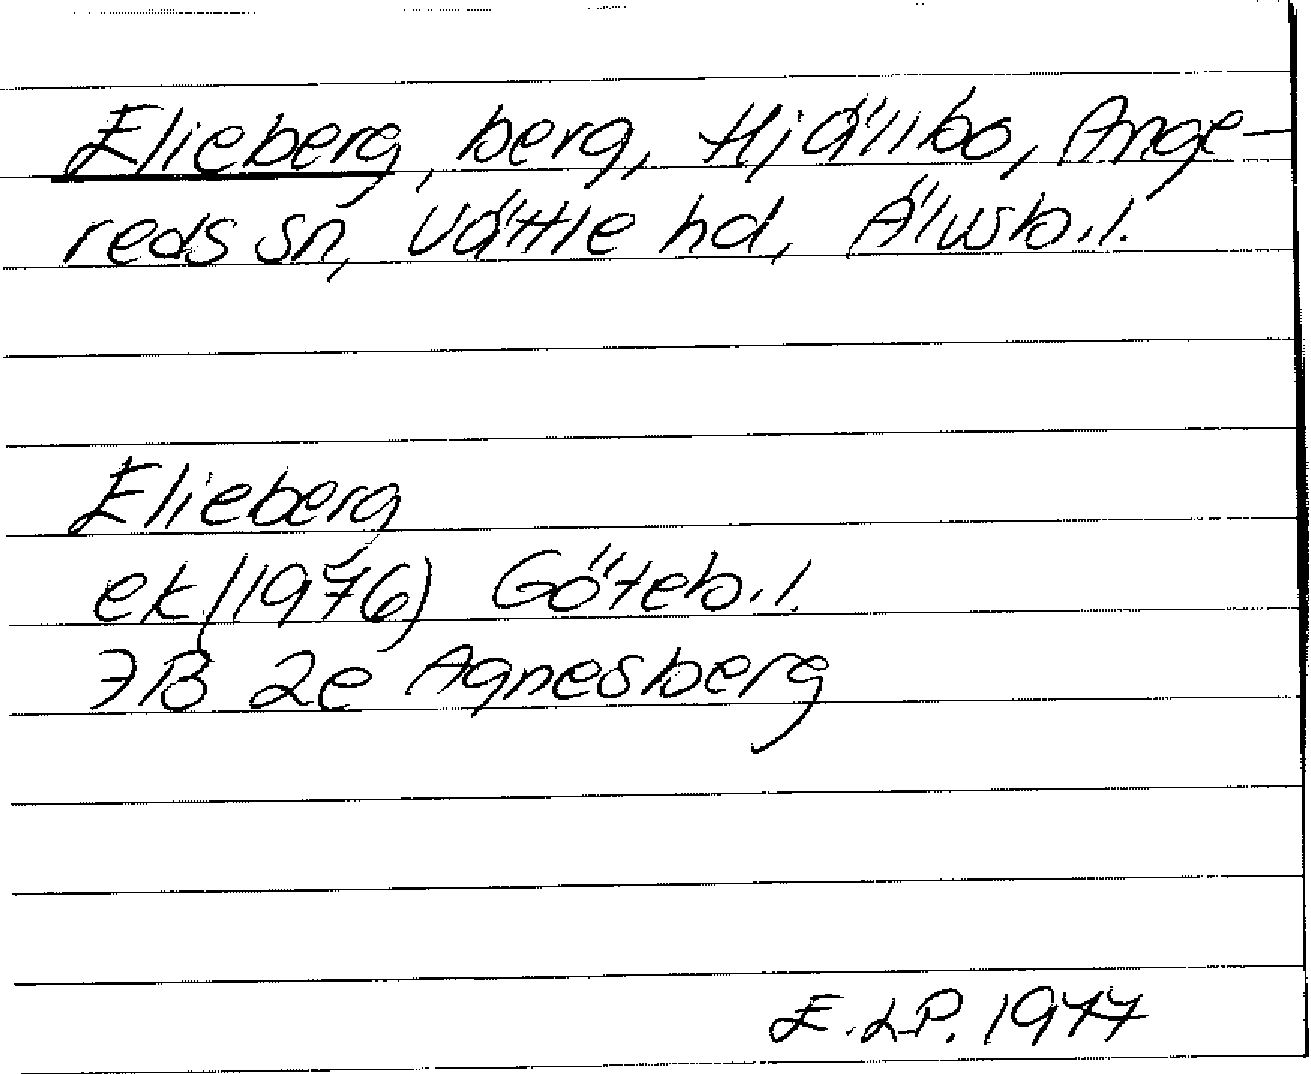 Elieberg, berg, Hjällbo, Ange-
reds sn, Vättle hd, Älvsb.l.
Elieberg
ek (1976) Göteb.l.
7B 2e Agnesberg
E.L.P. 1977